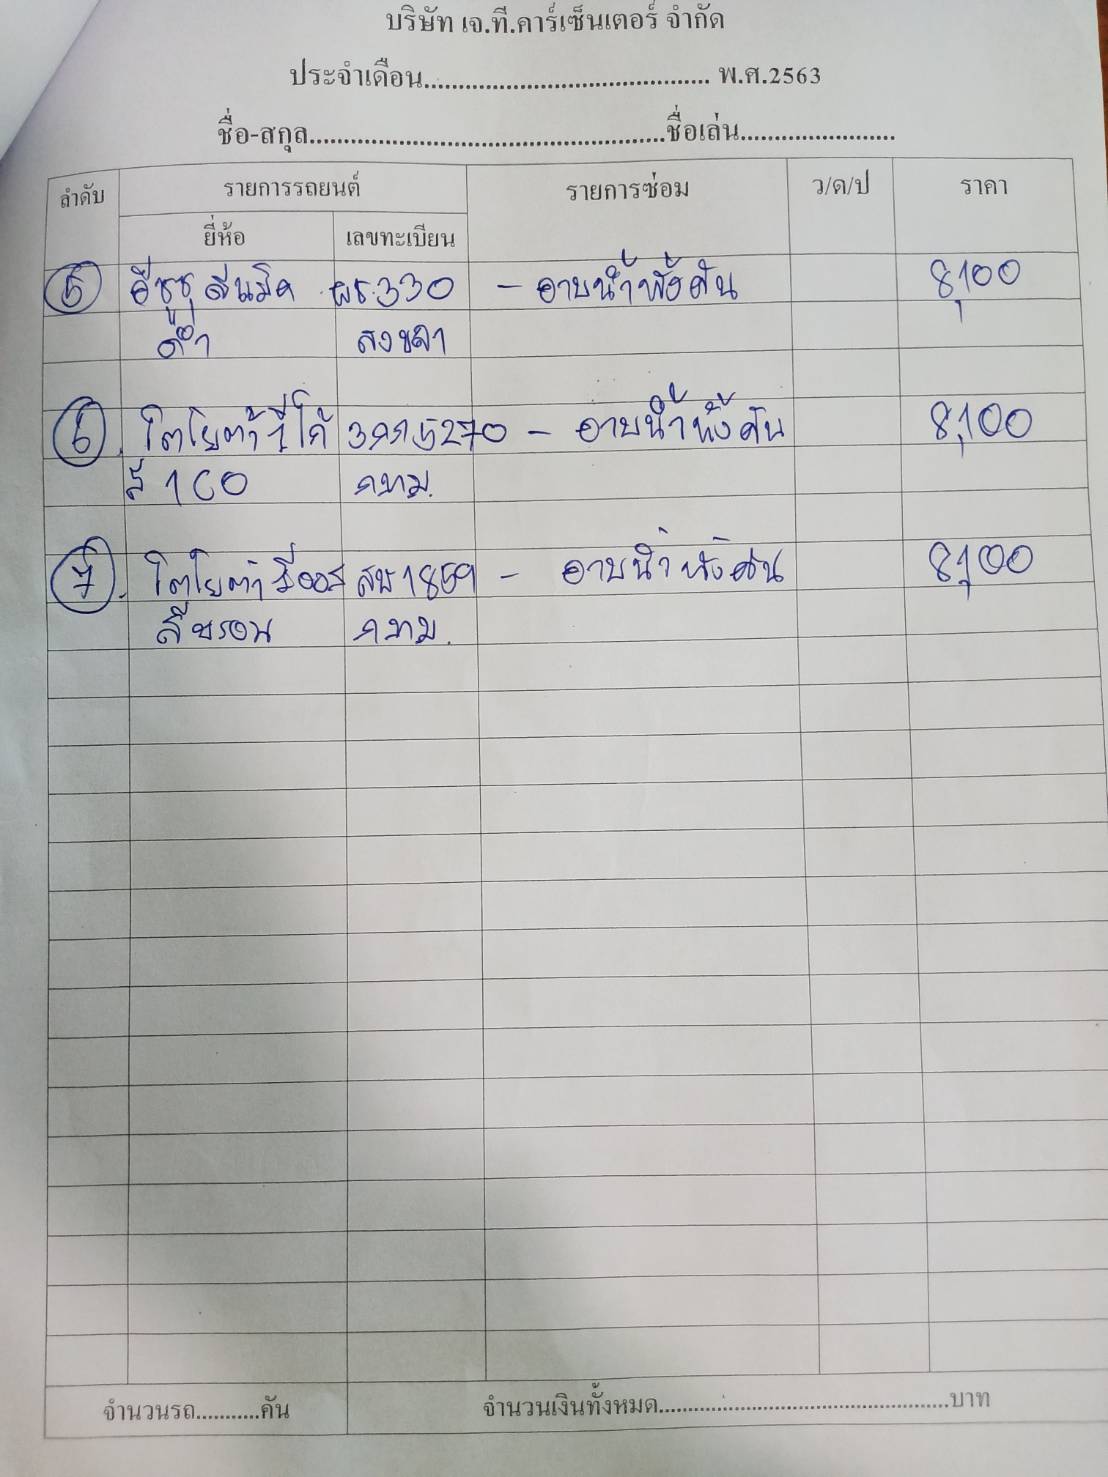 บริษัท เจ.ที.คาร์เซ็นเตอร์ จำกัด
ประจำเดือน.......................................... พ.ศ.2563
ชื่อ-สกุล....................................................ชื่อเล่น.......................
ลำดับ รายการรถยนต์ รายการซ่อม ว/ด/ป ราคา
ยี่ห้อ เลขทะเบียน
5 อีซูซุ 330 - อาบน้ำทั้งคัน 8,100
ดำ สงขลา
6. โตโยต้า วีโก้ 3กก5270 - อาบน้ำทั้งคัน 8,100
สี 1C0 กทม.
7. โตโยต้า วีออส 1859 - อาบน้ำทั้งคัน 8,100
สีบรอน กทม.
จำนวนรถ...........คัน จำนวนเงินทั้งหมด...............................................บาท